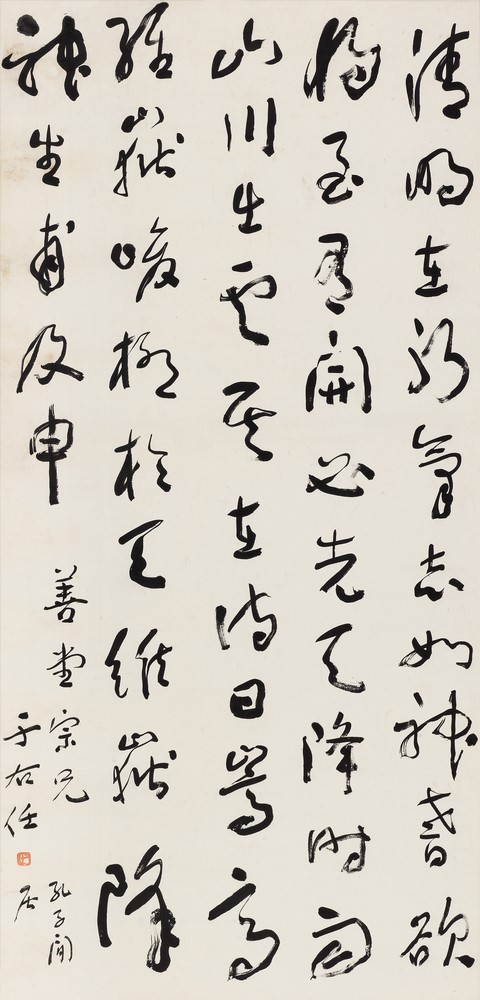 清明在躬氣志如神耆欲
將至有開必先天降時雨
山川出雲其在詩曰嵩高
維嶽峻極於天維嶽降
神生甫及申
善堂宗兄
于右任
孔子閒
居